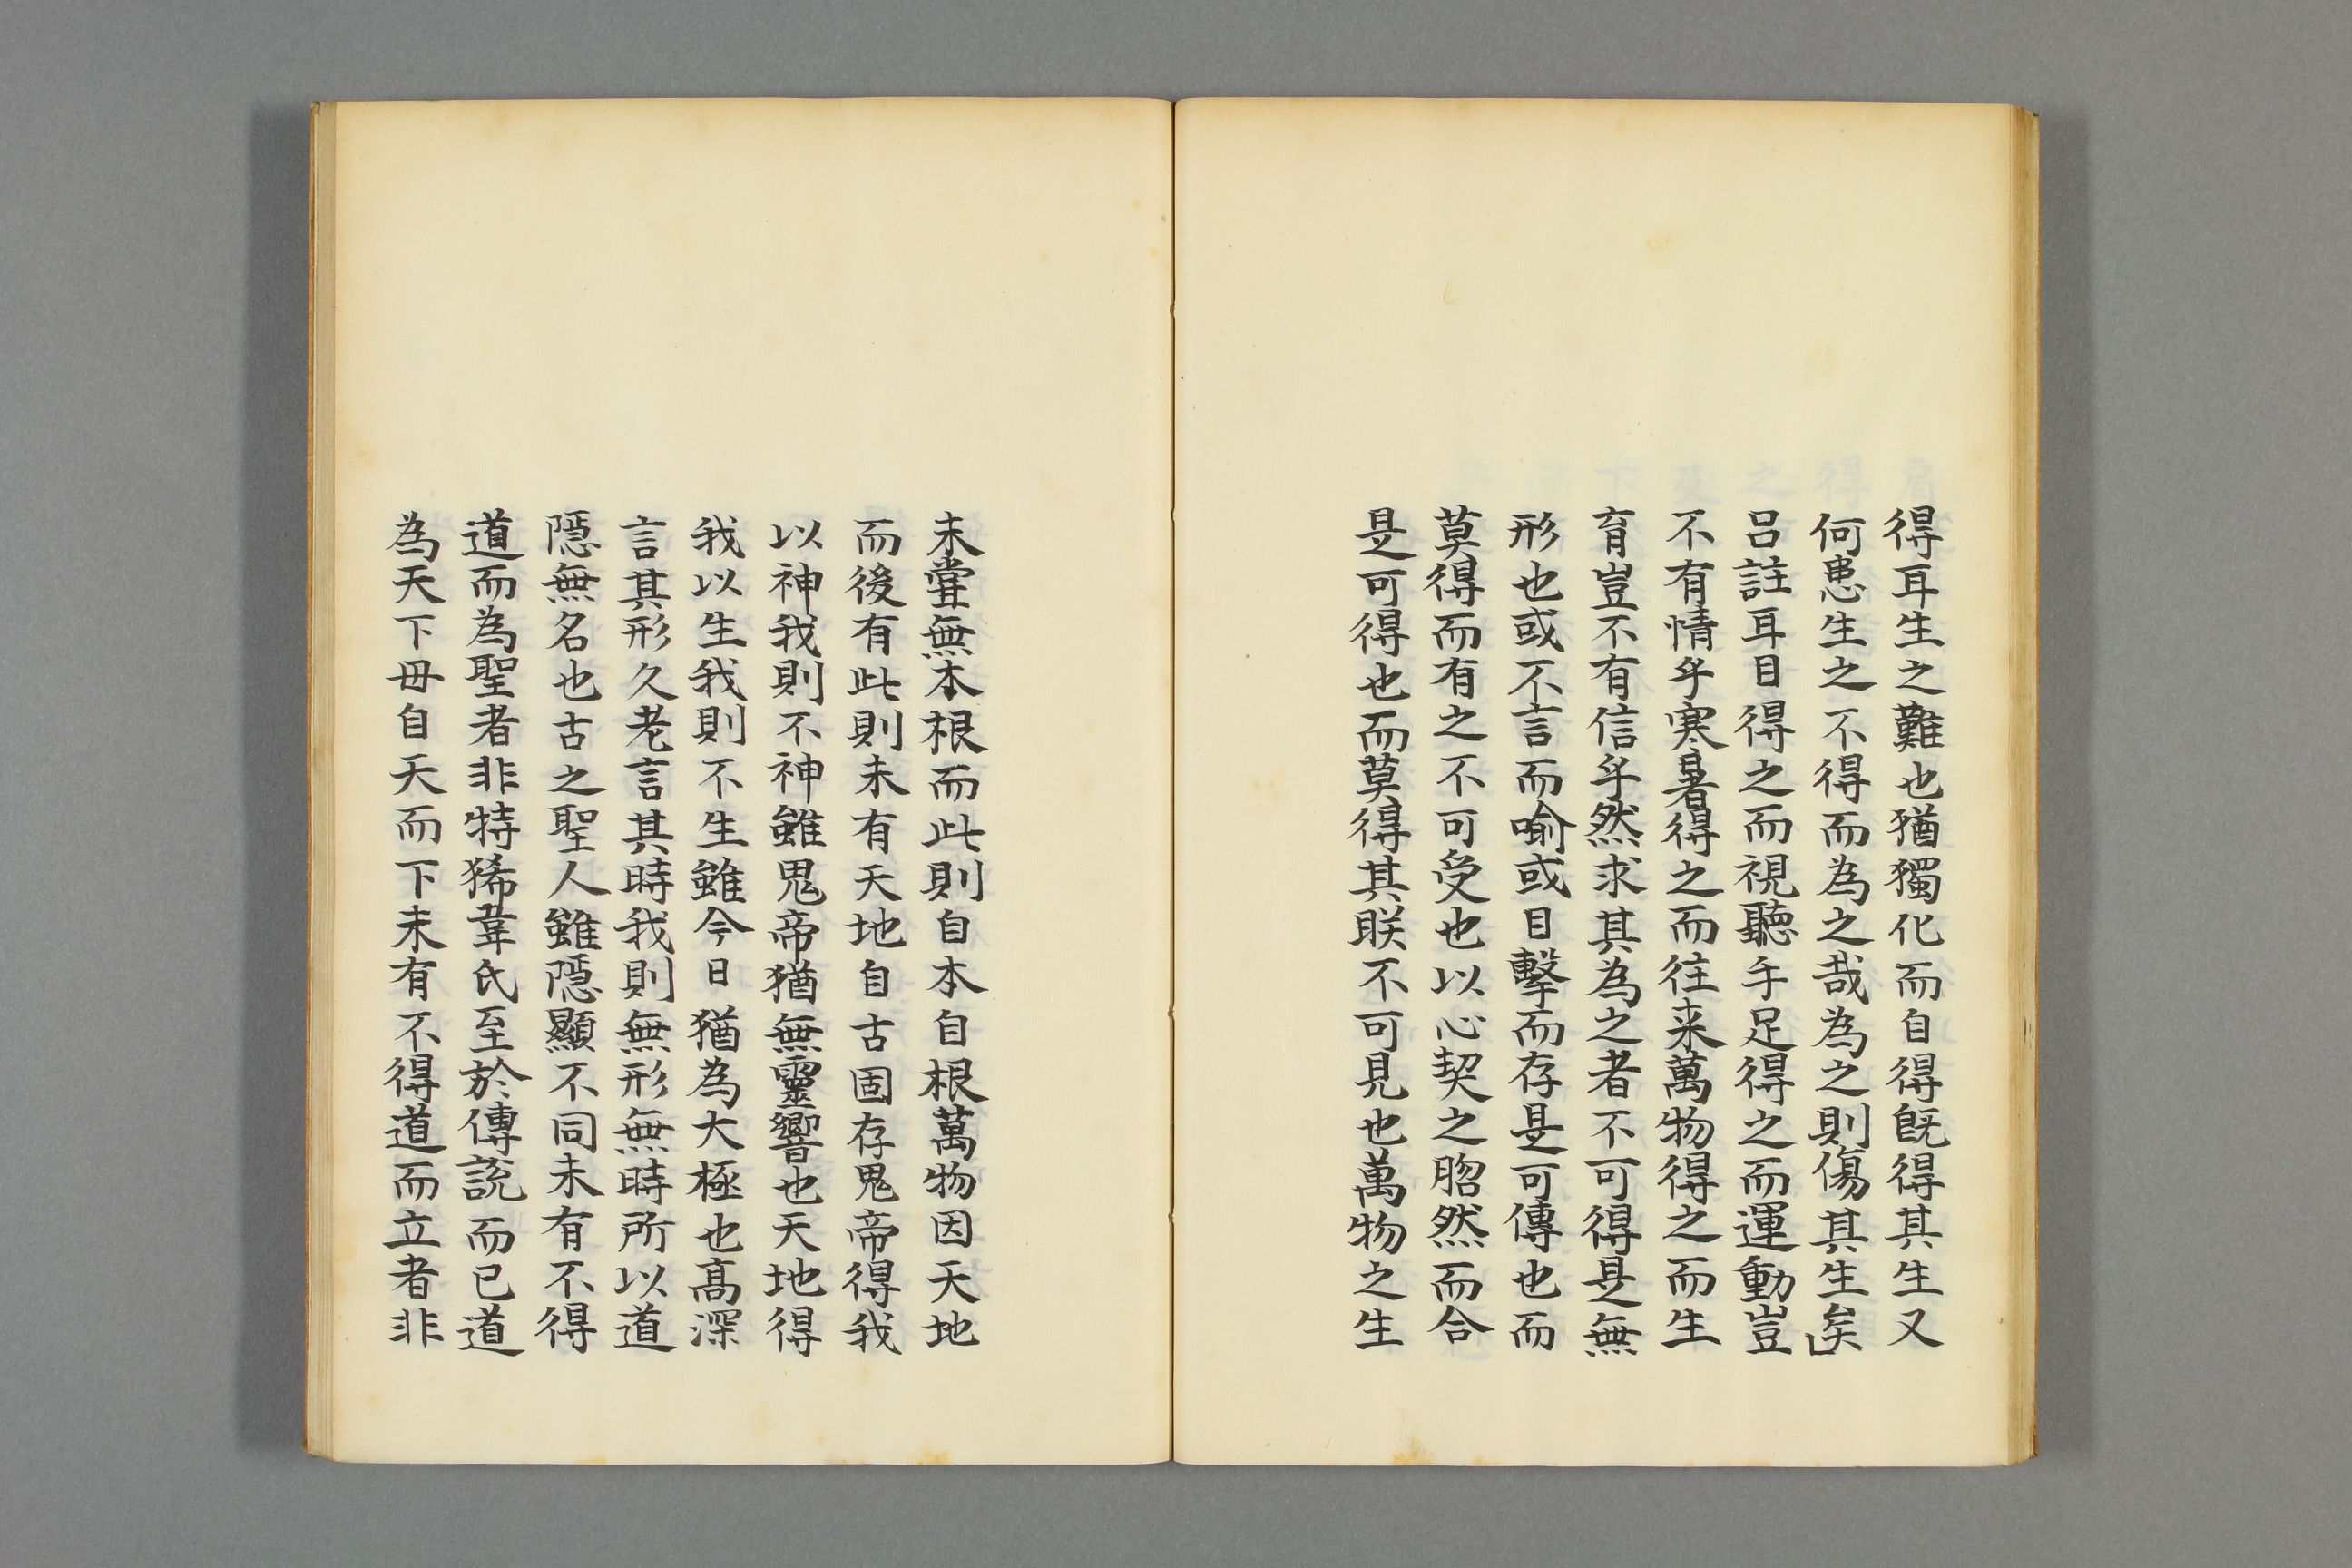 得耳生之難也猶獨化而自得既得其生又
何患生之不得而為之哉為之則傷其生矣」
呂註耳目得之而視聽手足得之而運動豈
不有情乎寒暑得之而往来萬物得之而生
育豈不有信乎然求其為之者不可得是無
形也或不言而喻或目擊而存是可傳也而
莫得而有之不可受也以心契之脗然而合
是可得也而莫得其眹不可見也萬物之生
未甞無本根而此則自本自根萬物因天地
而後有此則未有天地自古固存鬼帝得我
以神我則不神雖鬼帝猶無靈響也天地得
我以生我則不生雖今日猶為大極也高深
言其形久老言其時我則無形無時所以道
隱無名也古之聖人雖隱顯不同未有不得
道而為聖者非特狶韋氏至於傳説而已道
為天下毋自天而下未有不得道而立者非